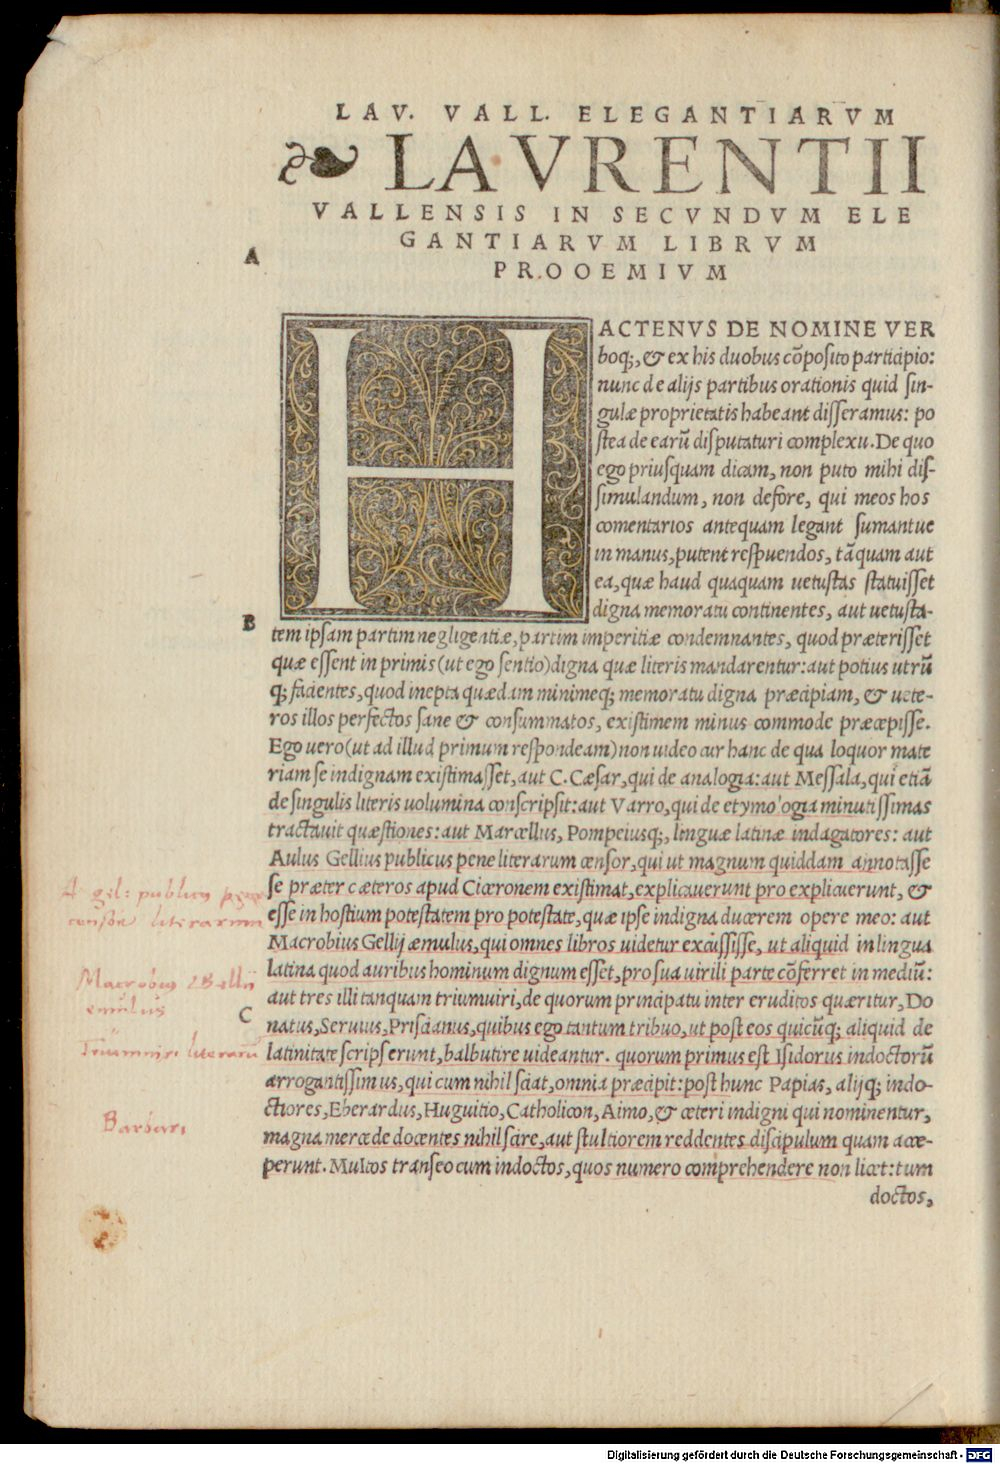 LAV. VALL. ELEGANTIARVM
LAVRENTII
VALLENSIS IN SECVNDVM ELE
GANTIARVM LIBRVM
A
PROOEMIVM
HACTENVS DE NOMINE VER
boq;, & ex his duobus cõposito participio:
nunc de alijs partibus orationis quid sin-
gulæ proprietatis habeant disseramus: po
stea de earũ disputaturi complexu. De quo
ego priusquam dicam, non puto mihi dis-
simulandum, non defore, qui meos hos
comentarios antequam legant sumantue
in manus, putent respuendos, tãquam aut
ea, quæ haud quaquam uetustas statuisset
digna memoratu continentes, aut uetusta-
B
tem ipsam partim negligentiæ, partim imperitiæ condemnantes, quod præterisset
quæ essent in primis (ut ego sentio) digna quæ literis mandarentur: aut potius utrũ
q; facientes, quod inepta quædam minimeq; memoratu digna præcipiam, & uete-
ros illos perfectos sane & consummatos, existimem minus commode præcepisse.
Ego uero (ut ad illud primum respondeam) non uideo cur hanc de qua loquor mate
riam se indignam existimasset, aut C. Cæsar, qui de analogia: aut Messala, qui etiã
de singulis literis uolumina conscripsit: aut Varro, qui de etymologia minutissimas
tractauit quæstiones: aut Marcellus, Pompeiusq;, linguæ latinæ indagatores: aut
Aulus Gellius publicus pene literarum censor, qui ut magnum quiddam annotasse
se præter cæteros apud Ciceronem existimat, explicauerunt pro explicuerunt, &
esse in hostium potestatem pro potestate, quæ ipse indigna ducerem opere meo: aut
Macrobius Gellij æmulus, qui omnes libros uidetur excussisse, ut aliquid in lingua
latina quod auribus hominum dignum esset, pro sua uirili parte cõferret in mediũ:
aut tres illi tanquam triumuiri, de quorum principatu inter eruditos quæritur, Do
C
natus, Seruius, Priscianus, quibus ego tantum tribuo, ut post eos quicũq; aliquid de
latinitate scripserunt, balbutire uideantur. quorum primus est Isidorus indoctorũ
arrogantissimus, qui cum nihil sciat, omnia præcipit: post hunc Papias, alijq; indo-
ctiores, Eberardus, Huguitio, Catholicon, Aimo, & cæteri indigni qui nominentur,
magna mercede docentes nihil scire, aut stultiorem reddentes discipulum quam acce-
perunt. Multos transeo cum indoctos, quos numero comprehendere non licet: tum
doctos,
A gel: publicus pene
censor literarum
Macrobius Gellij
emulus
Triumviri literarũ
Barbari
Digitalisierung gefördert durch die Deutsche Forschungsgemeinschaft - DFG